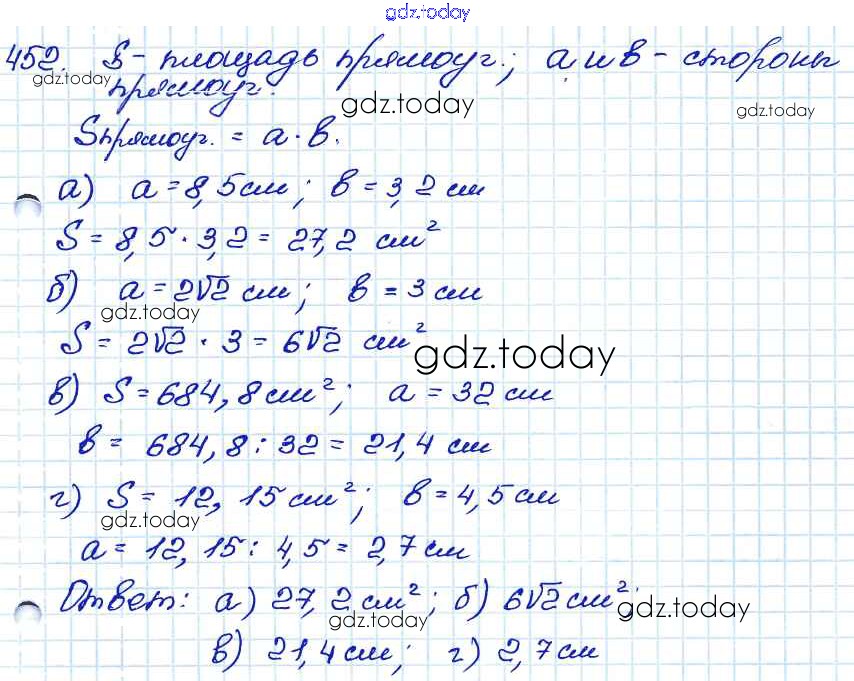 gdz.today
452. S - площадь прямоуг.; a и b - стороны
gdz.today
прямоуг.
gdz.today
gdz.today
Sпрямоуг. = a · b.
а) a = 8,5 см; b = 3,2 см
S = 8,5 · 3,2 = 27,2 см²
б) a = 2√2 см; b = 3 см
gdz.today
S = 2√2 · 3 = 6√2 см²
gdz.today
в) S = 684,8 см²; a = 32 см
b = 684,8 : 32 = 21,4 см
г) S = 12,15 см²; b = 4,5 см
gdz.today
a = 12,15 : 4,5 = 2,7 см
Ответ: а) 27,2 см²; б) 6√2 см²;
gdz.today
gdz.today
в) 21,4 см; г) 2,7 см